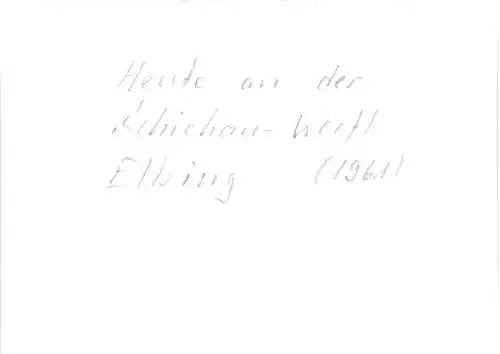 Heute an der
Schichau-Werft
Elbing (1961)